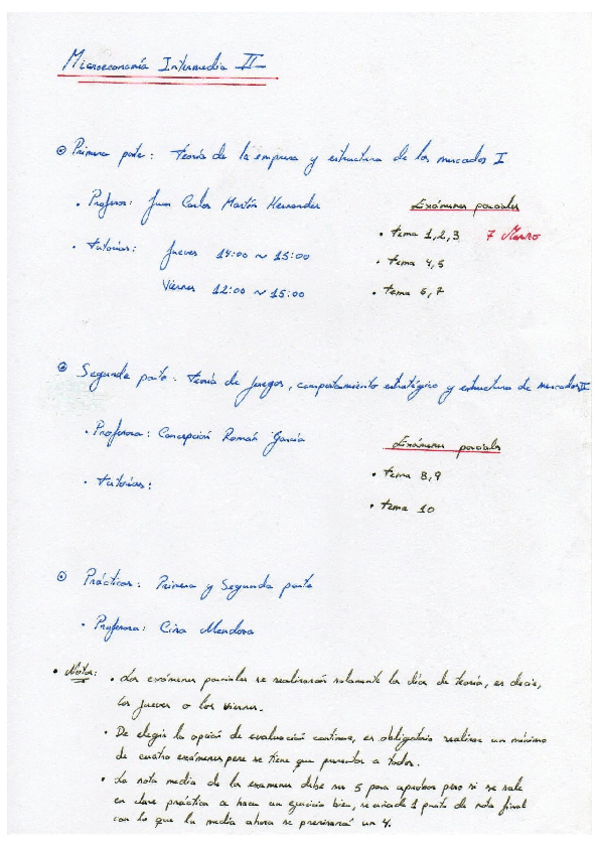 Microeconomía Intermedia II
Primera parte: Teoría de la empresa y estructura de los mercados I
• Profesor: Juan Carlos Martín Hernández
Exámenes parciales
• Tema 1,2,3 7 Marzo
• Tutorías: Jueves 14:00 ~ 15:00
• Tema 4,5
Viernes 12:00 ~ 15:00
• Tema 6,7
Segunda parte: Teoría de Juegos, comportamiento estratégico y estructura de mercados II
• Profesora: Concepción Román García
Exámenes parciales
• Tutorías:
• Tema 8,9
• Tema 10
Prácticas: Primera y Segunda parte
• Profesora: Cira Mendoza
• Notas: • Los exámenes parciales se realizarán solamente los días de teoría, es decir,
los jueves o los viernes.
• De elegir la opción de evaluación continua, es obligatorio realizar un mínimo
de cuatro exámenes pero se tiene que presentar a todos.
• La nota media de los examenes debe ser 5 para aprobar pero si se sale
en clase práctica a hacer un ejercicio bien, se añade 1 punto de nota final
con lo que la media ahora se precisará un 4.